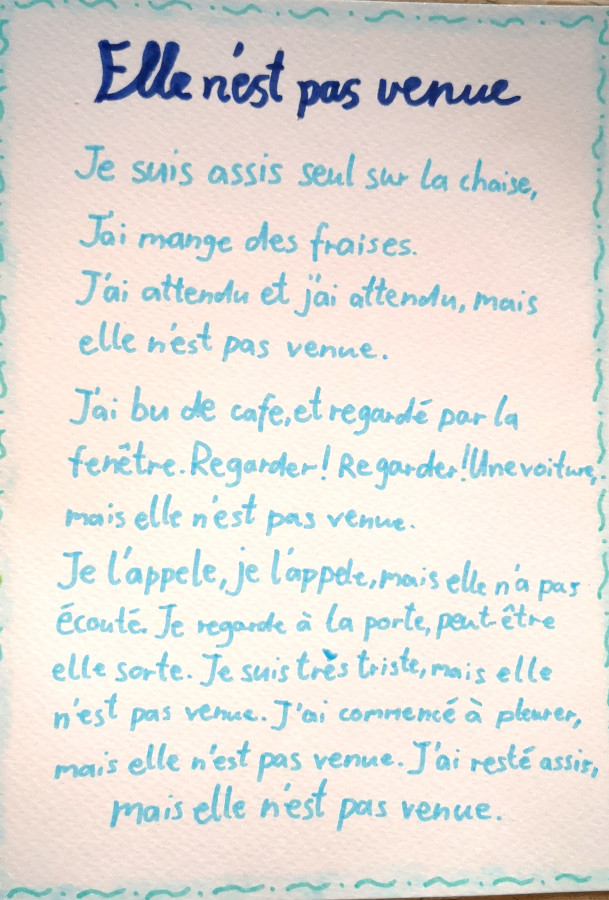 Elle n'est pas venue
Je suis assis seul sur la chaise,
J'ai mange des fraises.
J'ai attendu et j'ai attendu, mais
elle n'est pas venue.
J'ai bu de cafe, et regardé par la
fenêtre. Regarder! Regarder! Une voiture,
mais elle n'est pas venue.
Je l'appele, je l'appele, mais elle n'a pas
écouté. Je regarde à la porte, peut-être
elle sorte. Je suis très triste, mais elle
n'est pas venue. J'ai commencé à pleurer,
mais elle n'est pas venue. J'ai resté assis,
mais elle n'est pas venue.